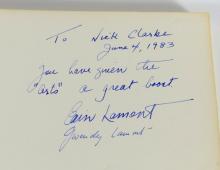 To Nick Clarke
June 4, 1983
You have given the
"arts" a great boost.
Lamont
Gwendy Lamont